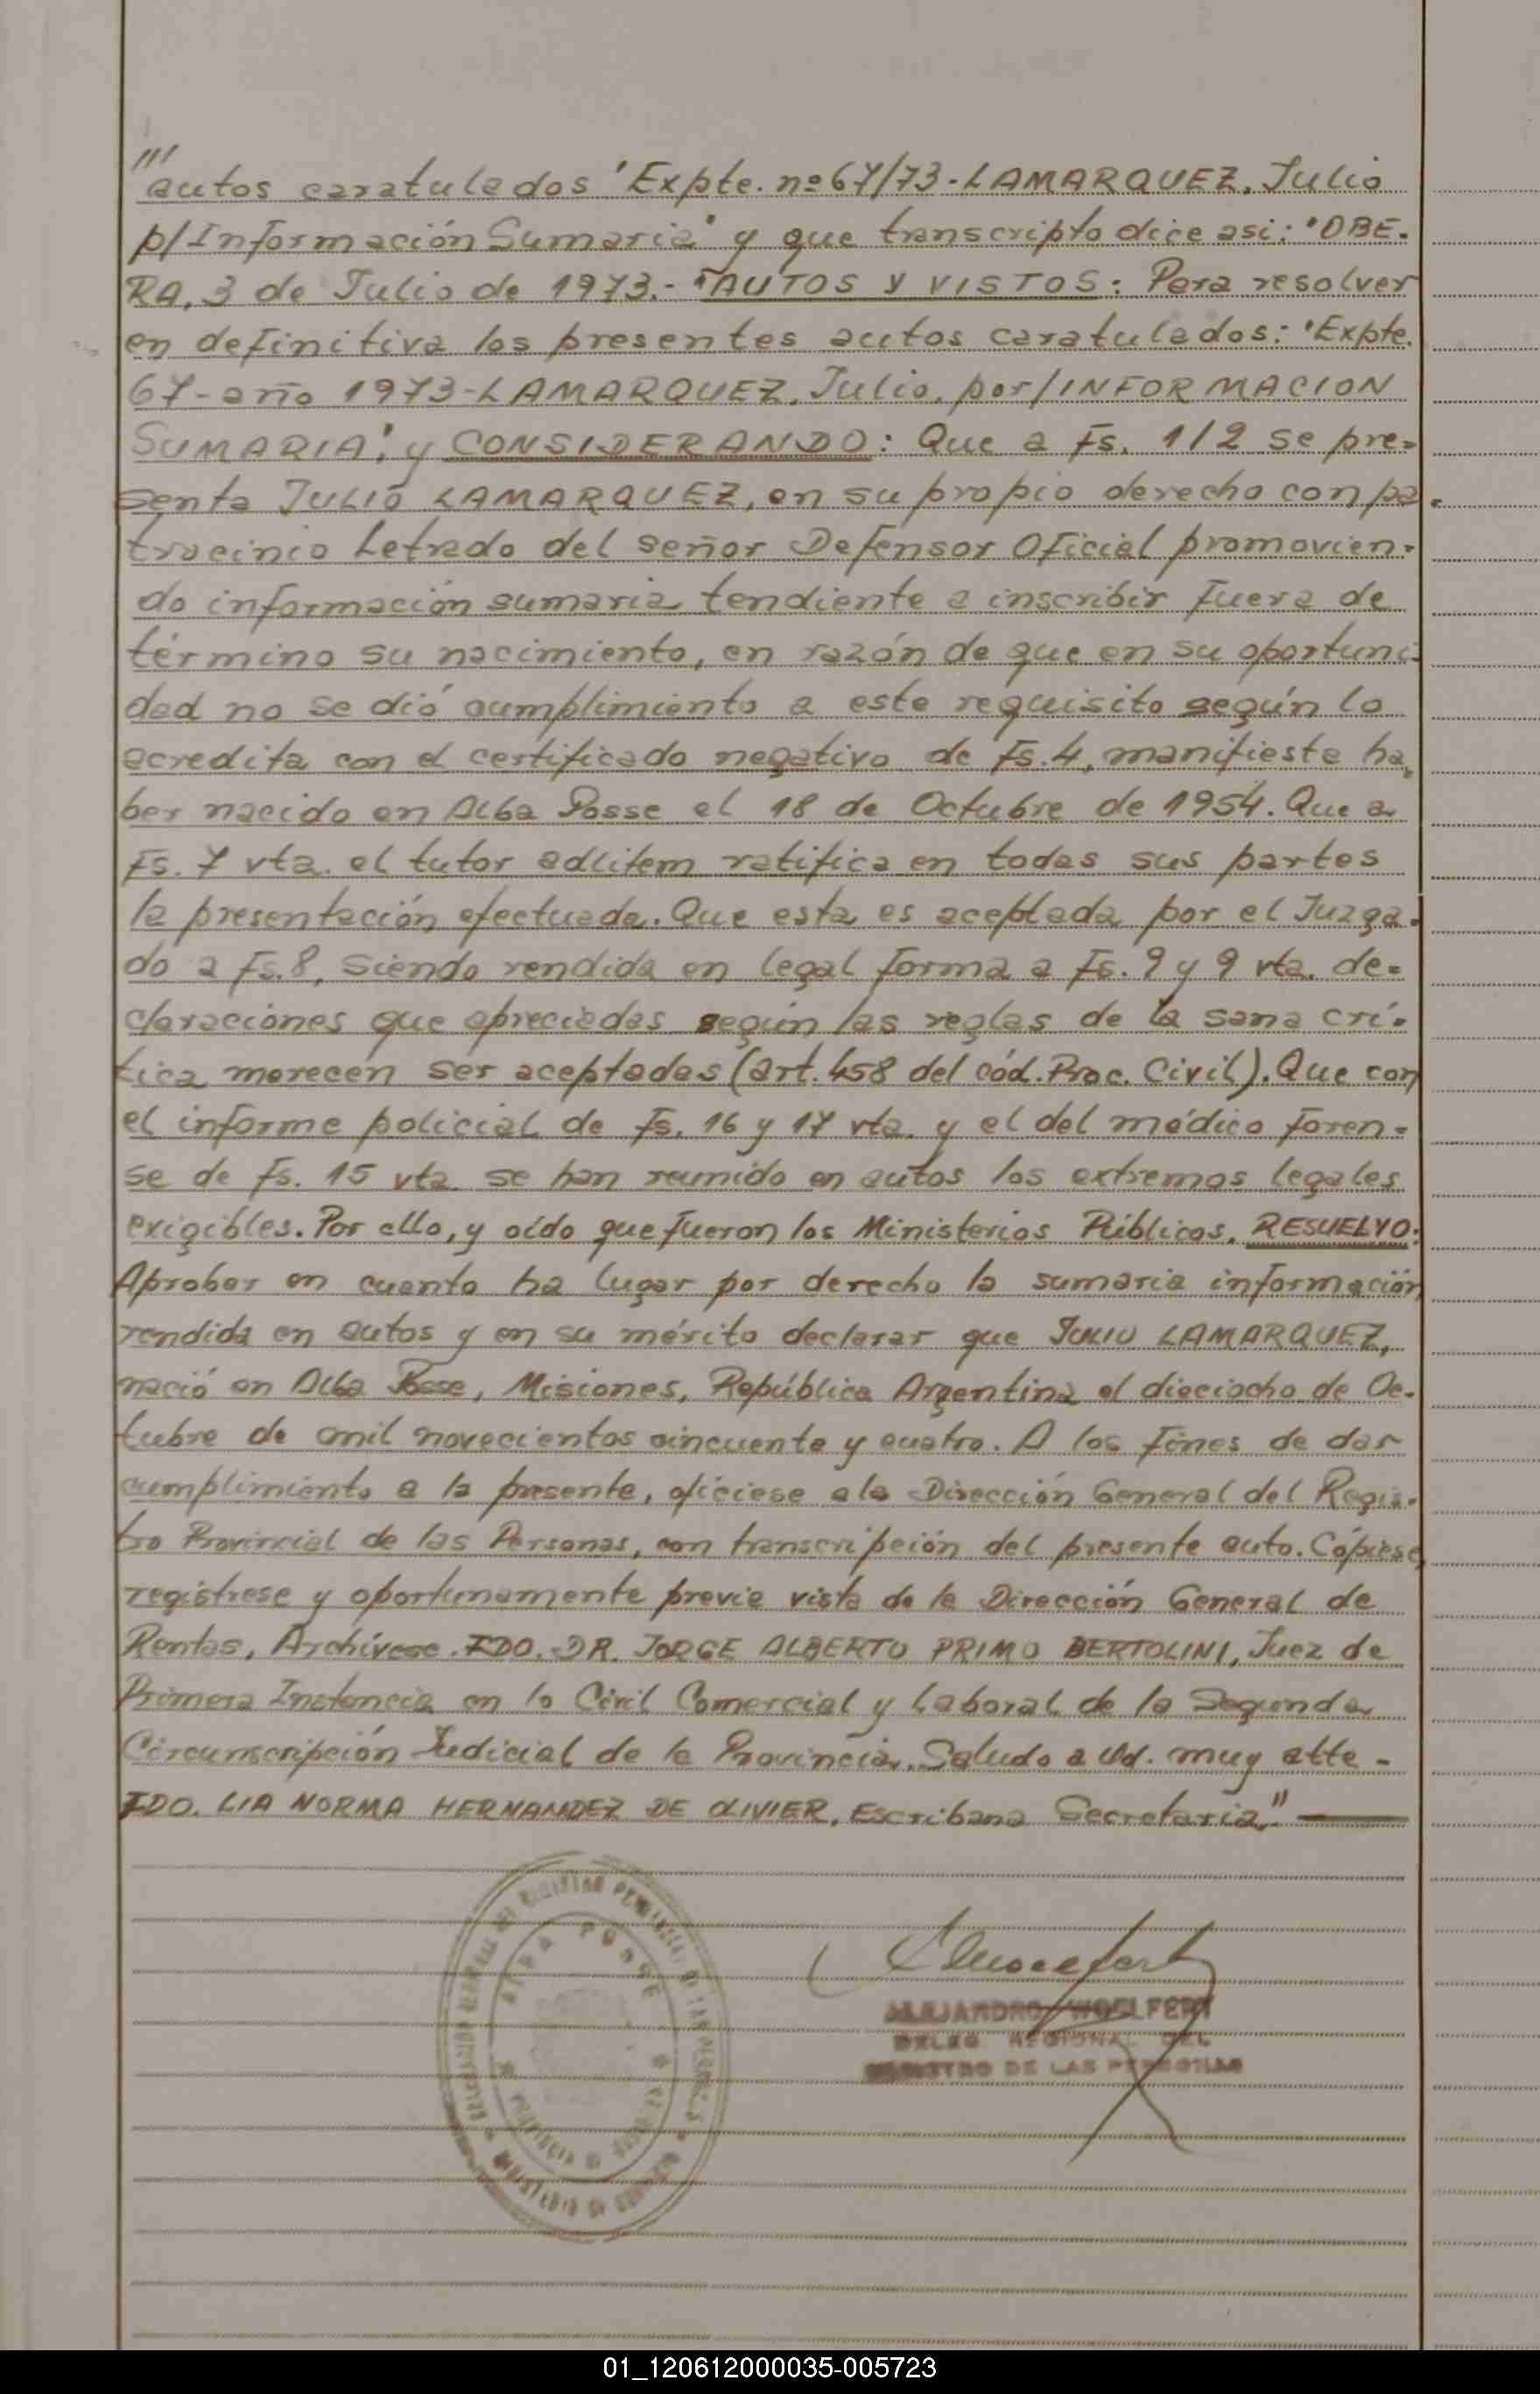 ///
autos caratulados "Expte. nº 67/73-LAMARQUEZ, Julio
p/Información Sumaria" y que transcripto dice asi: "OBE-
RA, 3 de Julio de 1973.- "AUTOS Y VISTOS: Para resolver
en definitiva los presentes autos caratulados: "Expte.
67-año 1973-LAMARQUEZ, Julio, por/INFORMACION
SUMARIA", y CONSIDERANDO: Que a Fs. 1/2 se pre-
senta JULIO LAMARQUEZ, en su propio derecho con pa-
trocinio Letrado del señor Defensor Oficial promovien-
do información sumaria tendiente a inscribir fuera de
término su nacimiento, en razón de que en su oportuni-
dad no se dió cumplimiento a este requisito según lo
acredita con el certificado negativo de Fs. 4, manifiesta ha-
ber nacido en Alba Posse el 18 de Octubre de 1954. Que a
Fs. 7 vta. el tutor adlitem ratifica en todas sus partes
la presentación efectuada. Que esta es aceptada por el Juzga-
do a Fs. 8, siendo rendida en legal forma a Fs. 9 y 9 vta. de-
claraciones que apreciadas según las reglas de la sana crí-
tica merecen ser aceptadas (art. 458 del cód. Proc. Civil). Que con
el informe policial de Fs. 16 y 17 vta. y el del médico foren-
se de Fs. 15 vta. se han reunido en autos los extremos legales
exigibles. Por ello, y oído que fueron los Ministerios Públicos, RESUELVO:
Aprobar en cuanto ha lugar por derecho la sumaria información
rendida en autos y en su mérito declarar que JULIO LAMARQUEZ,
nació en Alba Posse, Misiones, República Argentina el dieciocho de Oc-
tubre de mil novecientos cincuenta y cuatro. A los fines de dar
cumplimiento a la presente, ofíciese a la Dirección General del Regis-
tro Provincial de las Personas, con transcripción del presente auto. Cópiese,
regístrese y oportunamente previa vista de la Dirección General de
Rentas, Archívese. FDO. DR. JORGE ALBERTO PRIMO BERTOLINI, Juez de
Primera Instancia en lo Civil Comercial y Laboral de la Segunda
Circunscripción Judicial de la Provincia. Saludo a Ud. muy atte-
FDO. LIA NORMA HERNANDEZ DE OLIVIER, Escribana Secretaria."
ALBA POSSE
ALEJANDRO WOELFERT
DELEG REGIONAL DEL
REGISTRO DE LAS PERSONAS
01_120612000035-005723